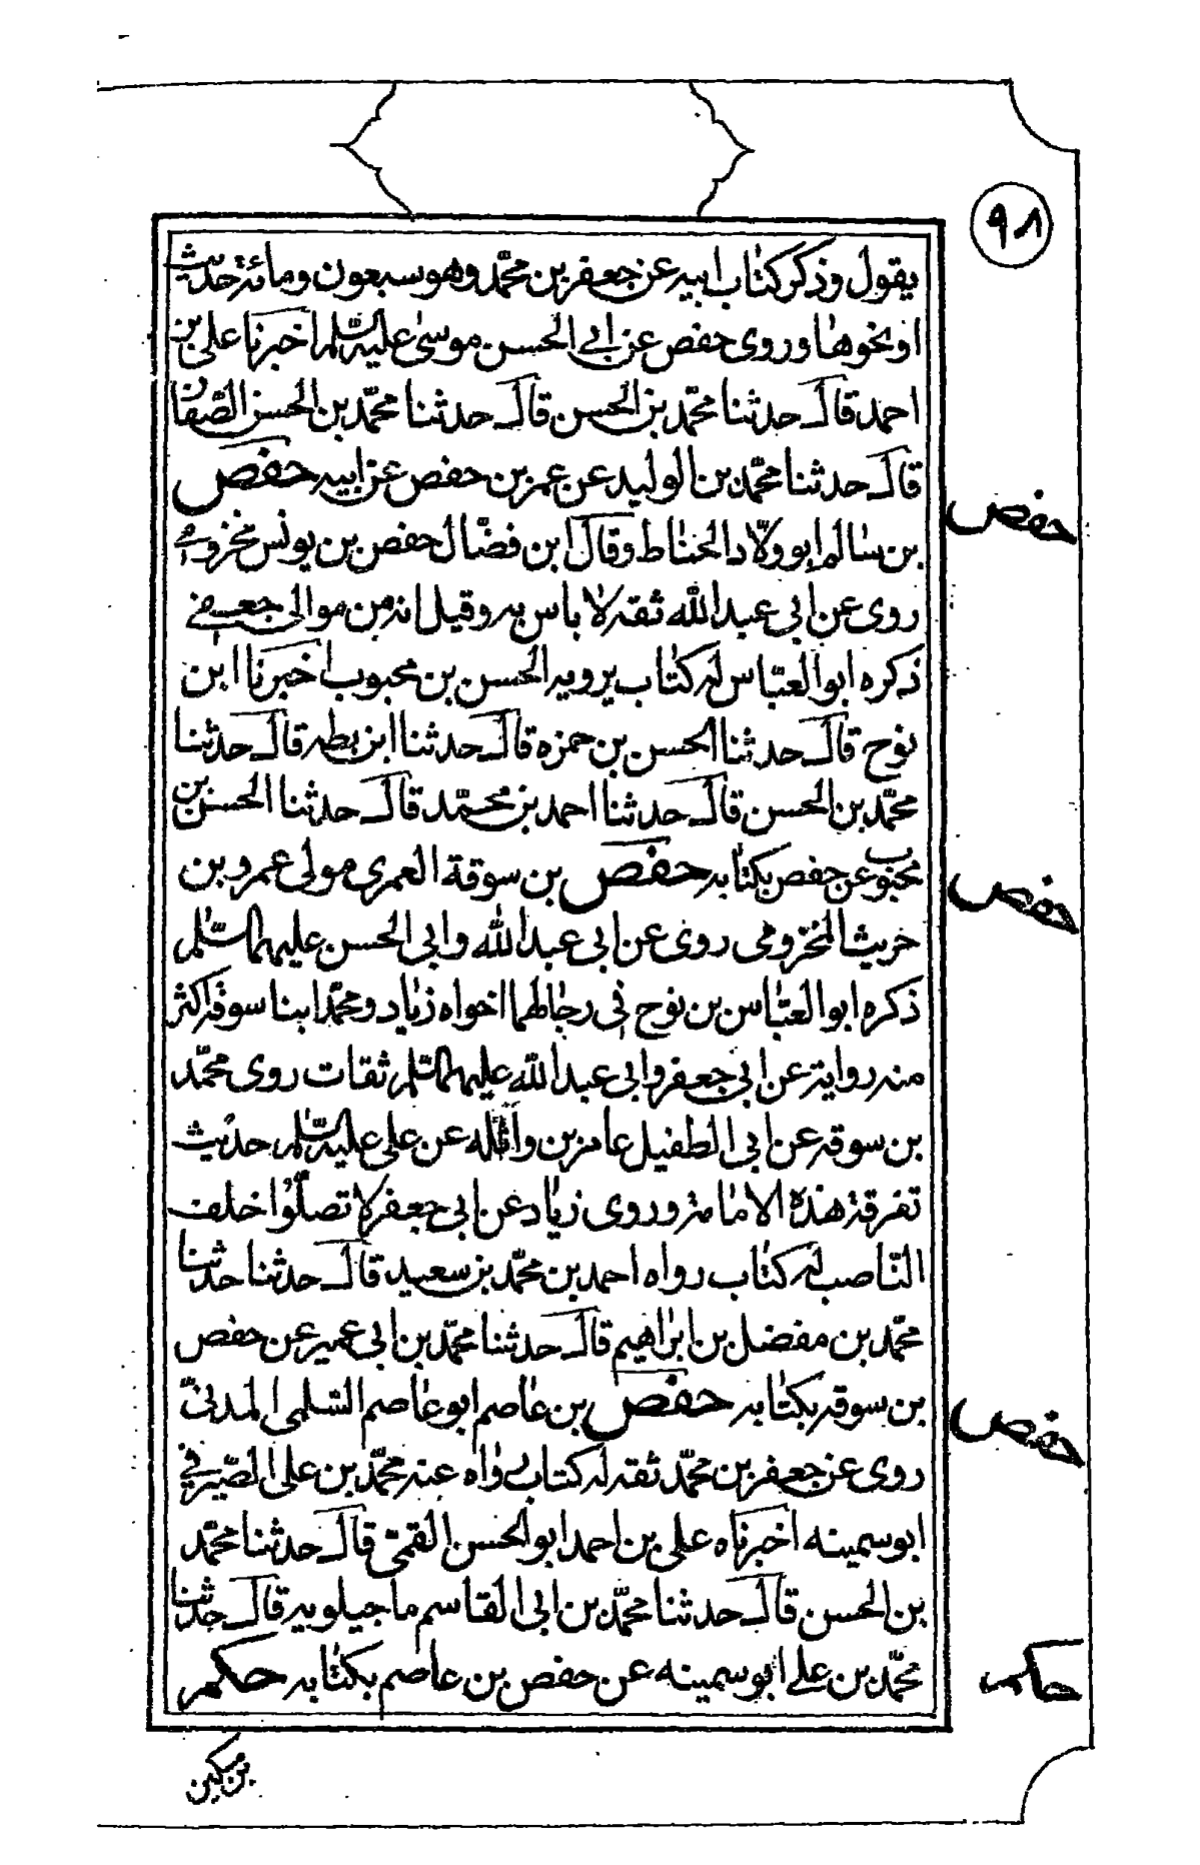 ٩٨
يقول وذكر كتاب ابيه عن جعفر بن محمّد وهو سبعون ومائة حديث
او نحوها وروى حفص عن ابي الحسن موسى عليه السّلم اخبرنا على بن
احمد قال حدثنا محمّد بن الحسن قال حدثنا محمّد بن الحسن الصّفار
قال حدثنا محمّد بن الوليد عن عمر بن حفص عن ابيه حفص
حفص
بن سالم ابو ولّاد الحناط وقال ابن فضّال حفص بن يونس مخزومى
روى عن ابي عبد الله ثقة لا باس به وقيل انه من موالى جعفى
ذكره ابو العبّاس له كتاب يرويه الحسن بن محبوب اخبرنا ابن
نوح قال حدثنا الحسن بن حمزه قال حدثنا ابن بطه قال حدثنا
محمّد بن الحسن قال حدثنا احمد بن محمّد قال حدثنا الحسن بن
محبوب عن حفص بكتابه حفص بن سوقة العمرى مولى عمرو بن
حفص
حريث المخزومى روى عن ابي عبد الله وابى الحسن عليهما السّلم
ذكره ابو العبّاس بن نوح في رجالهما اخواه زياد ومحمّد ابنا سوقة اكثر
منه رواية عن ابي جعفر وابى عبد الله عليهما السّلم ثقات روى محمّد
بن سوقه عن ابى الطفيل عامر بن واثله عن على عليه السّلم حديث
تفرقة هذه الامامة وروى زياد عن ابى جعفر لا تصلّوا خلف
النّاصب له كتاب رواه احمد بن محمّد بن سعيد قال حدثنا حدثنا
محمّد بن مفضل بن ابراهيم قال حدثنا محمّد بن ابى عمير عن حفص
بن سوقه بكتابه حفص بن عاصم ابو عاصم السّلمى المدنىّ
حفص
روى عن جعفر بن محمّد ثقه له كتاب رواه عنه محمّد بن على الصّيرفي
ابو سمينه اخبرناه على بن احمد ابو الحسن القمىّ قال حدثنا محمّد
بن الحسن قال حدثنا محمّد بن ابى القاسم ماجيلويه قال حدثنا
محمّد بن على ابو سمينه عن حفص بن عاصم بكتابه حكم
حكم
بن مسكين